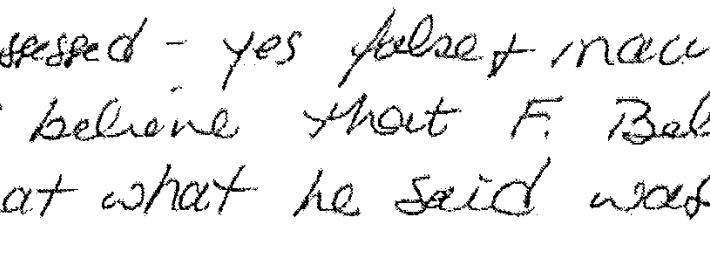 ssessed - yes false + inacc
believe that F. Bel
at what he said was